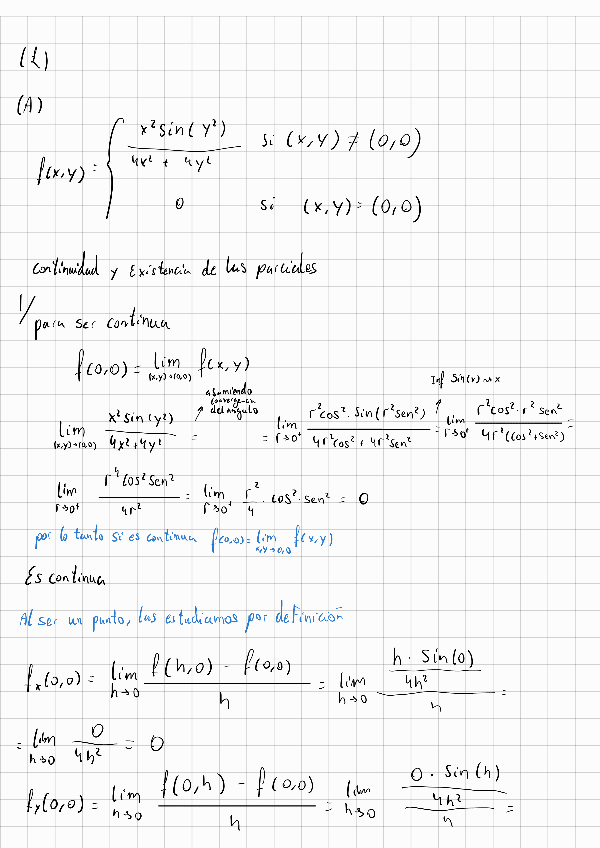 (1)
(A)
f(x,y) = { x² sin(y²) / 4x² + 4y² si (x,y) ≠ (0,0)
0 si (x,y) = (0,0)
continuidad y Existencia de las parciales
1/
para ser continua
f(0,0) = lim (x,y)→(0,0) f(x,y)
asumiendo convergencia del angulo
Inf sin(x) ~ x
lim (x,y)→(0,0) x² sin(y²) / 4x² + 4y² = = lim r→0⁺ r² cos² · sin(r² sen²) / 4r² cos² + 4r² sen² = lim r→0⁺ r² cos² · r² sen² / 4r² (cos² + sen²) =
lim r→0⁺ r⁴ cos² sen² / 4r² = lim r→0⁺ r²/4 · cos² · sen² = 0
por lo tanto si es continua f(0,0) = lim x,y→0,0 f(x,y)
Es continua
Al ser un punto, las estudiamos por definición
fx(0,0) = lim h→0 f(h,0) - f(0,0) / h = lim h→0 h · sin(0) / 4h² / h =
= lim h→0 0 / 4h² = 0
fy(0,0) = lim h→0 f(0,h) - f(0,0) / h = lim h→0 0 · sin(h) / 4h² / h =